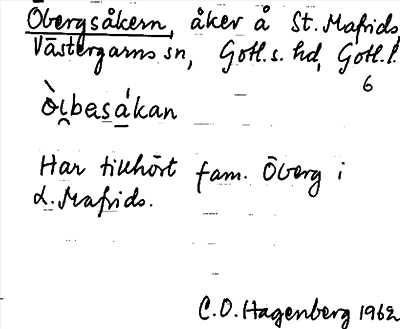 Öbergsåkern, åker å St. Mafrids,
Västergarns sn, Gotl. s. hd, Gotl. l.
6
Òi̯bas̲á̲kan
Har tillhört fam. Öberg i
L. Mafrids.
C.O. Hagenberg 1962